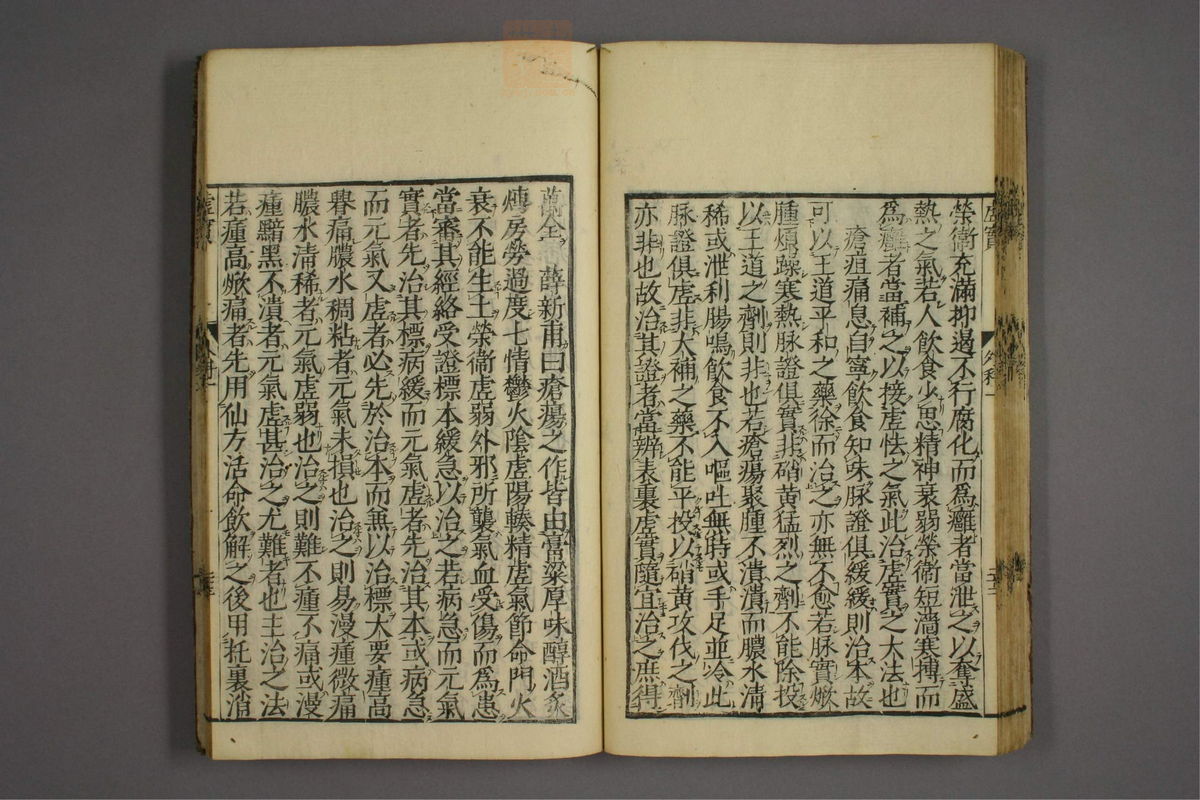 榮衛充滿抑遏不行腐化而爲癰者當泄之以奪盛
熱之氣若人飲食少思精神衰弱榮衛短濇寒搏而
爲癰者當補之以接虛怯之氣此治虛實之大法也
瘡疽痛息自寧飲食知味脉證俱緩緩則治本故
可以王道平和之藥徐而治之亦無不愈若脉實焮
腫煩躁寒熱脉證俱實非硝黃猛烈之劑不能除投
以王道之劑則非也若瘡瘍聚腫不潰潰而膿水淸
稀或泄利腸鳴飲食不入嘔吐無時或手足並冷此
脉證俱虛非大補之藥不能平投以硝黃攻伐之劑
亦非也故治其證者當辨表裏虛實隨宜治之庶得
萬全 薛新甫曰瘡瘍之作皆由膏粱厚味醇酒炙
煿房勞過度七情鬱火陰虛陽輳精虛氣節命門火
衰不能生土榮衛虛弱外邪所襲氣血受傷而爲患
當審其經絡受證標本緩急以治之若病急而元氣
實者先治其標病緩而元氣虛者先治其本或病急
而元氣又虛者必先於治本而兼以治標大要瘇高
㷈痛膿水稠粘者元氣未損也治之則易漫瘇微痛
膿水淸稀者元氣虛弱也治之則難不瘇不痛或漫
瘇黯黑不潰者元氣虛甚治之尤難者也主治之法
若瘇高焮痛者先用仙方活命飲解之後用托裏消
虛實
外科一